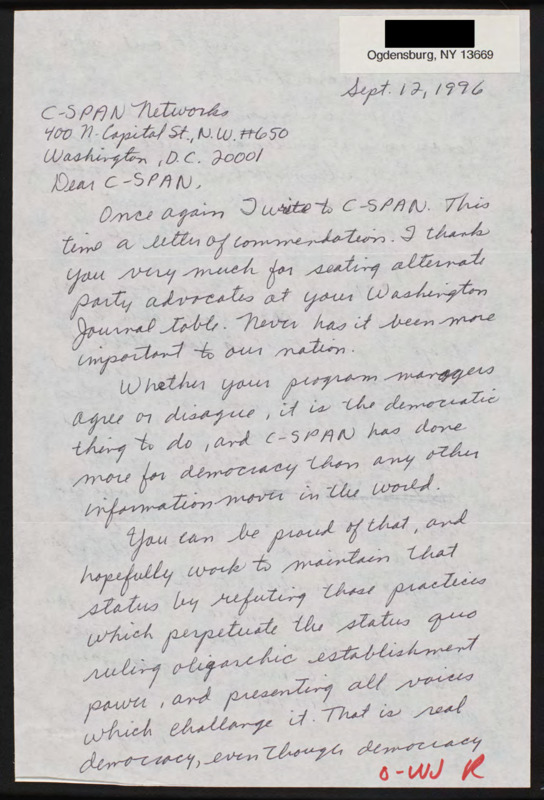 Ogdensburg, NY 13669
Sept. 12, 1996
C-SPAN Networks
400 N. Capital St., N.W. #650
Washington, D.C. 20001
Dear C-SPAN,
Once again I write to C-SPAN. This
time a letter of commendation. I thank
you very much for seating alternate
party advocates at your Washington
Journal table. Never has it been more
important to our nation.
Whether your program managers
agree or disagree, it is the democratic
thing to do, and C-SPAN has done
more for democracy than any other
information mover in the world.
You can be proud of that, and
hopefully work to maintain that
status by refuting those practices
which perpetuate the status quo
ruling oligarchic establishment
power, and presenting all voices
which challange it. That is real
democracy, even though democracy
O-WJ R